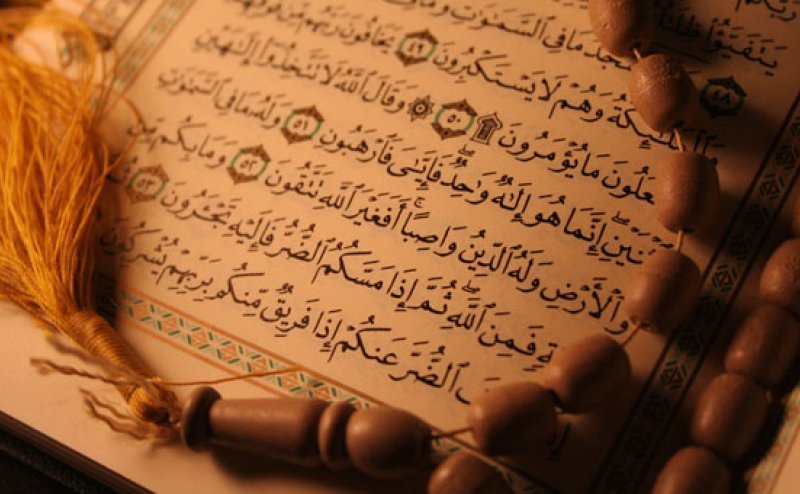 يَتَفَيَّؤُا۟ ظِلَٰلُهُ
٤٨ يَسْجُدُ مَا فِى ٱلسَّمَٰوَٰتِ وَمَا
وَٱلْمَلَٰٓئِكَةُ وَهُمْ لَا يَسْتَكْبِرُونَ ٤٩ يَخَافُونَ رَبَّهُم مِّن فَوْقِهِمْ
وَيَفْعَلُونَ مَا يُؤْمَرُونَ ۩ ٥٠ ۞ وَقَالَ ٱللَّهُ لَا تَتَّخِذُوٓا۟ إِلَٰهَيْنِ
ٱثْنَيْنِ إِنَّمَا هُوَ إِلَٰهٌ وَٰحِدٌ فَإِيَّٰىَ فَٱرْهَبُونِ ٥١ وَلَهُۥ مَا فِى ٱلسَّمَٰوَٰتِ
وَٱلْأَرْضِ وَلَهُ ٱلدِّينُ وَاصِبًا أَفَغَيْرَ ٱللَّهِ تَتَّقُونَ ٥٢ وَمَا بِكُم مِّن
فَمِنَ ٱللَّهِ ثُمَّ إِذَا مَسَّكُمُ ٱلضُّرُّ فَإِلَيْهِ تَجْـَٔرُونَ ٥٣
ٱلضُّرَّ عَنكُمْ إِذَا فَرِيقٌ مِّنكُم بِرَبِّهِمْ يُشْرِكُونَ